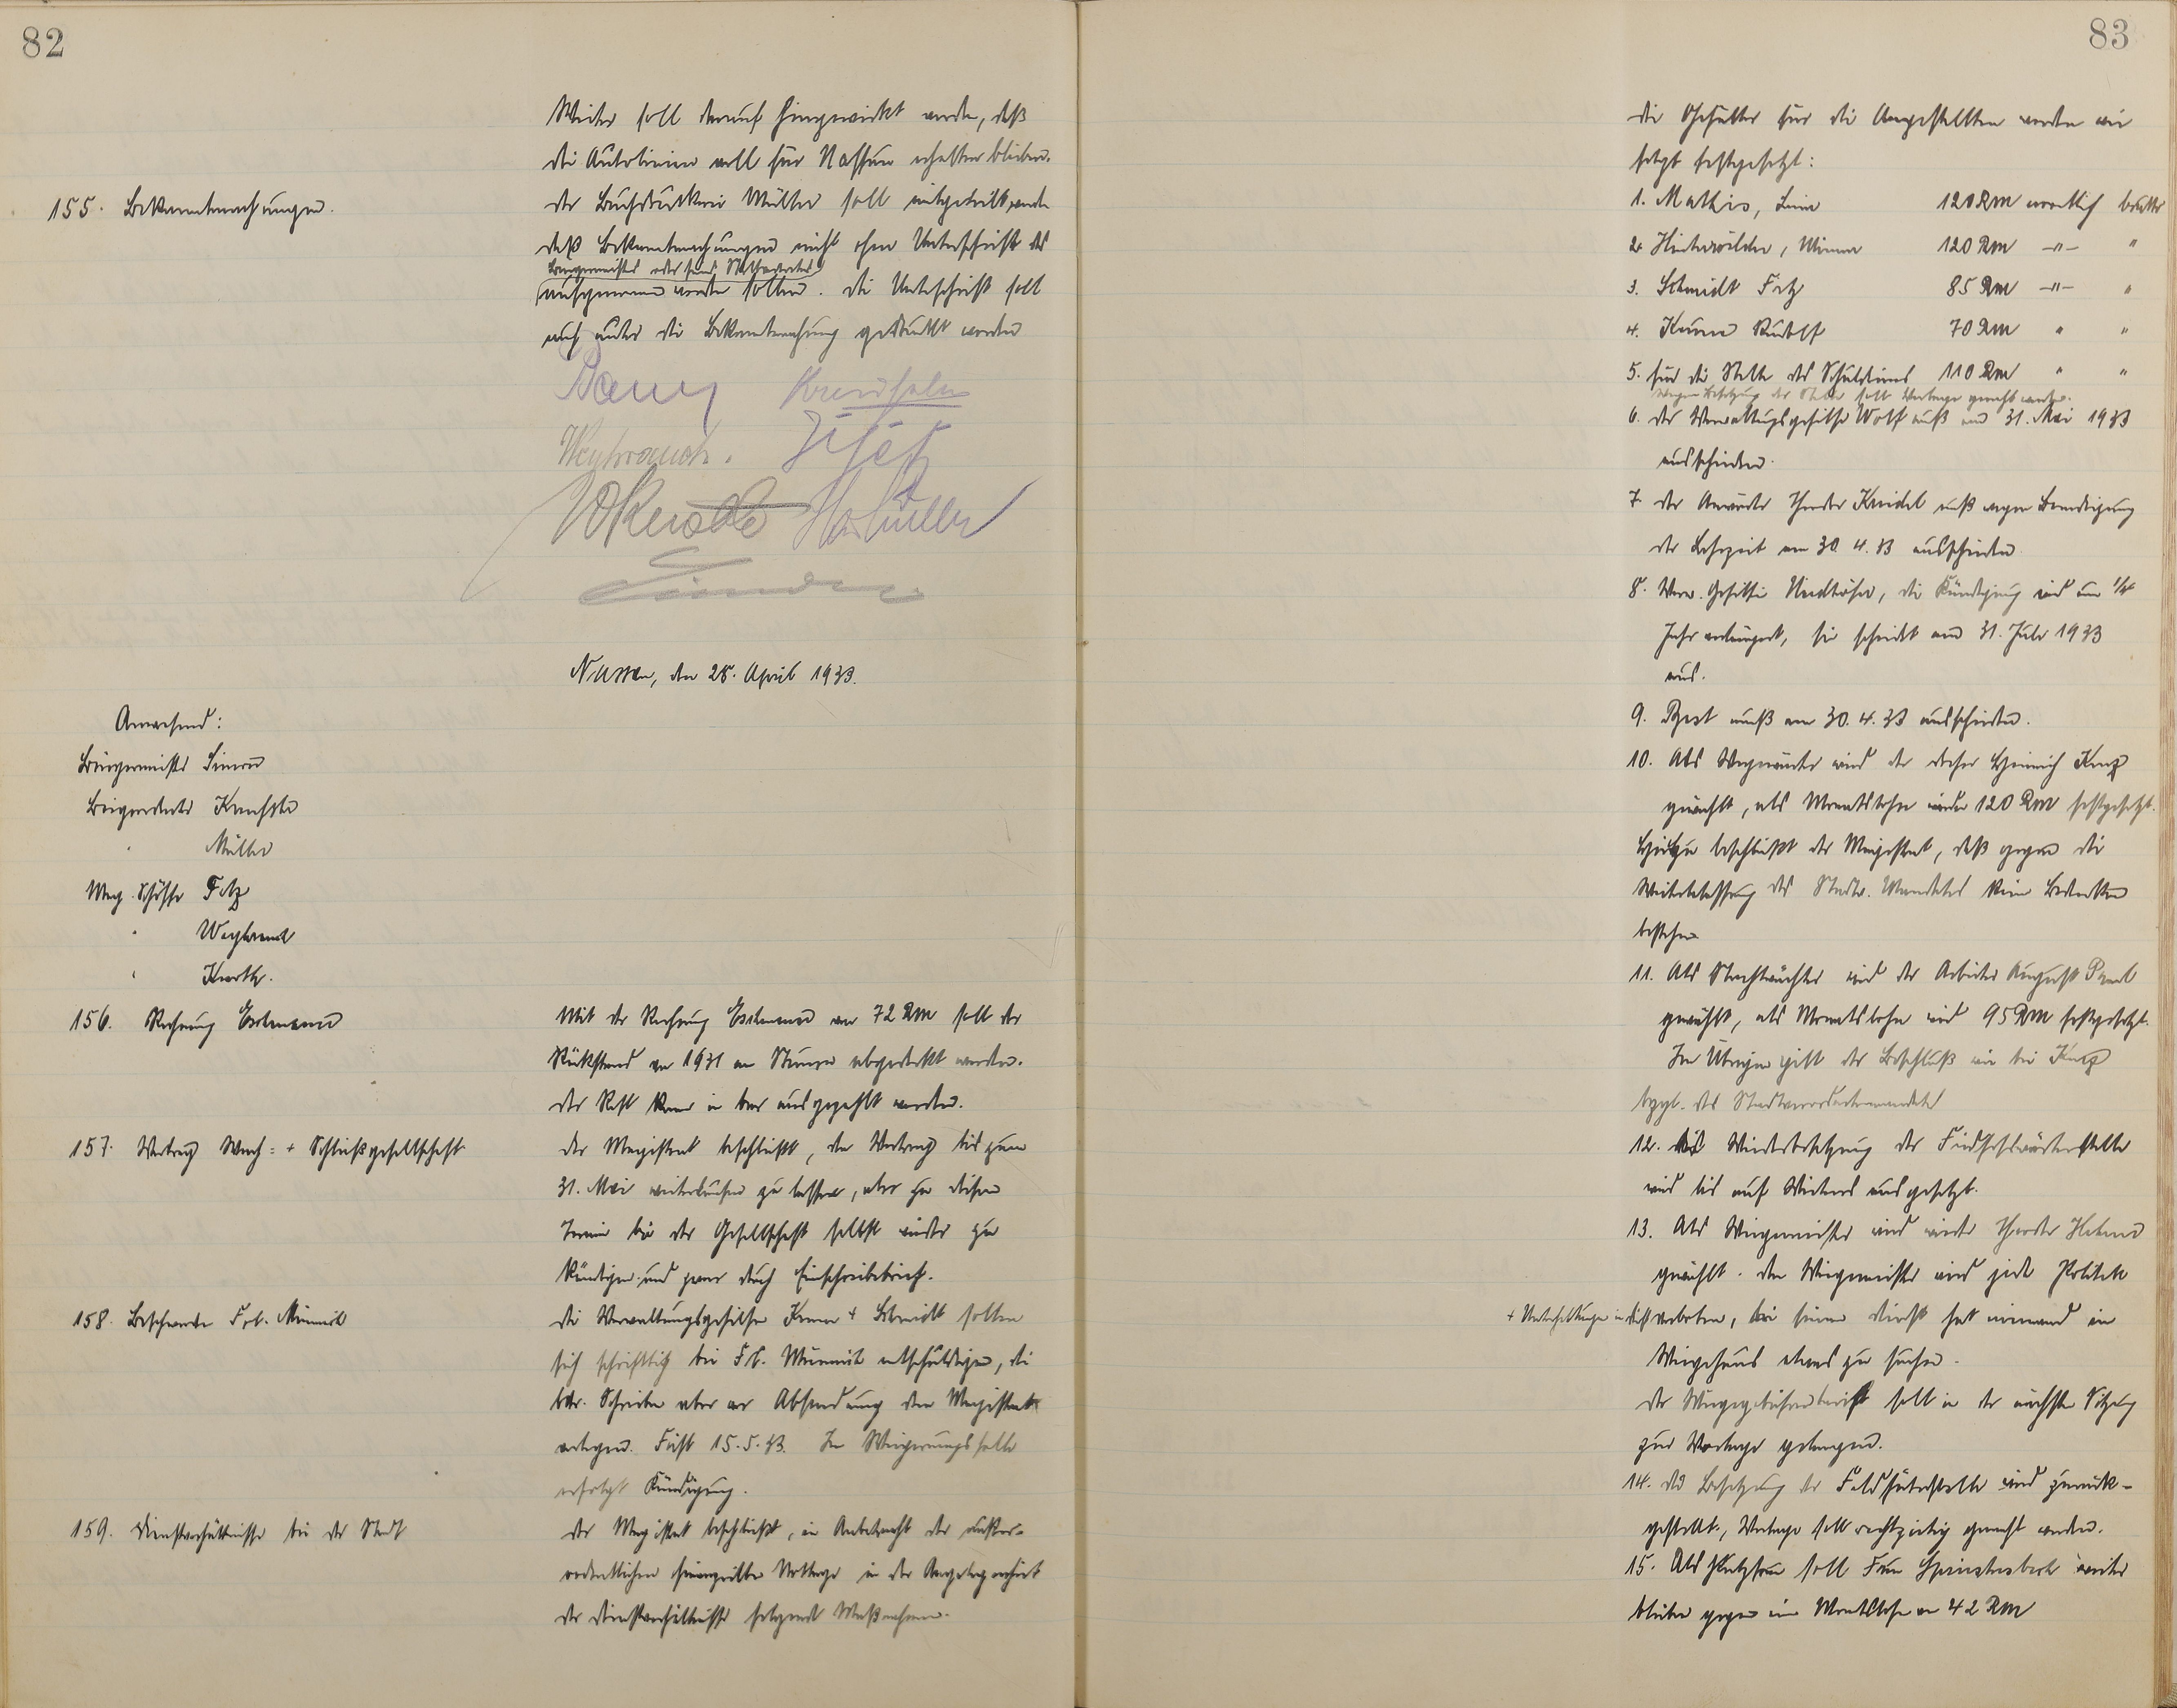 82
Weiter soll darauf hingewirkt werden, daß
die Autolinien voll für Nassau erhalten bleiben.
155. Bekanntmachungen.
Der Buchdruckerei Müller soll mitgeteilt werden
daß Bekanntmachungen nicht ohne Unterschrift des
Bürgermeisters oder seines Stellvertreters
aufgenommen werden sollen. Die Unterschrift soll
auch unter die Bekanntmachung gedruckt werden
Weyhrauch.
Nassau, den 28. April 1933.
Anwesend:
Bürgermeister
Beigeordneter
" Müller
Mag. Schöffe Fetz
" Weyhrauch
"
156. Rechnung
Mit der Rechnung von 72 RM soll der
Rückstand von 1931 an Steuern abgedeckt werden.
Der Rest kann in bar ausgezahlt werden.
157. Vertrag Wach- + Schließgesellschaft
Der Magistrat beschließt, den Vertrag bis zum
31. Mai weiterlaufen zu lassen, aber zu diesem
Termin bei der Gesellschaft selbst wieder zu
kündigen und zwar durch Einschreibebrief.
158. Beschwerde Frl.
Die Verwaltungsgehilfen + Schmidt sollen
sich schriftlich bei Frl. entschuldigen, die
betr. Schreiben aber vor Absendung dem Magistrat
vorlegen. Frist 15.5.33. Im Weigerungsfalle
erfolgt Kündigung.
159. Dienstverhältnisse bei der Stadt
Der Magistrat beschließt, in Anbetracht der außer-
ordentlichen finanziellen Notlage in der Angelegenheit
der Dienstverhältnisse folgende Maßnahmen.
83
Die Gehälter für die Angestellten werden wie
folgt festgesetzt:
1. Mathis, 120 RM monatlich brutto
2. 120 RM -"- "
3. Schmidt Fritz 85 RM -"- "
4. Rudolf 70 RM " "
5. für die Stelle des Schuldieners 110 RM " "
Wegen Besetzung der Stelle soll Vorlage gemacht werden.
6. Der Verwaltungsgehilfe Wolf muß am 31. Mai 1933
ausscheiden.
7. Der Anwärter Theodor muß wegen Beendigung
der Lehrzeit am 30.4.33 ausscheiden
8. Verw. Gehilfin die Kündigung wird um 1/4
Jahr verlängert, sie scheidet am 31. Juli 1933
aus.
9. muß am 30.4.33 ausscheiden.
10. Als wird der Heinrich
gewählt, als Monatslohn werden 120 RM festgesetzt.
Hierzu beschließt der Magistrat, daß gegen die
Weiterbelassung des Stadtv. Mandates keine Bedenken
bestehen
11. Als Nachtwächter wird der Arbeiter August Paul
gewählt, als Monatslohn wird 95 RM festgesetzt.
Im Übrigen gilt der Beschluß wie bei
bzgl. des Stadtverordnetenmandates
12. Die Wiederbesetzung der Friedhofswärterstelle
wird bis auf Weiteres ausgesetzt.
13. Als Wiegemeister wird wieder Theodor
gewählt. Dem Wiegemeister wird jede Politik
+ Unterhaltungen im Dienst verboten, bei seinem Dienst hat niemand im
Wiegehaus etwas zu suchen.
Der Wiegegebührentarif soll in der nächsten Sitzung
zur Vorlage gelangen.
14. Die Besetzung der Feldhüterstelle wird zurück-
gestellt, Vorlage soll rechtzeitig gemacht werden.
15. Als Putzfrau soll Frau weiter
bleiben gegen ein Monatslohn von 42 RM